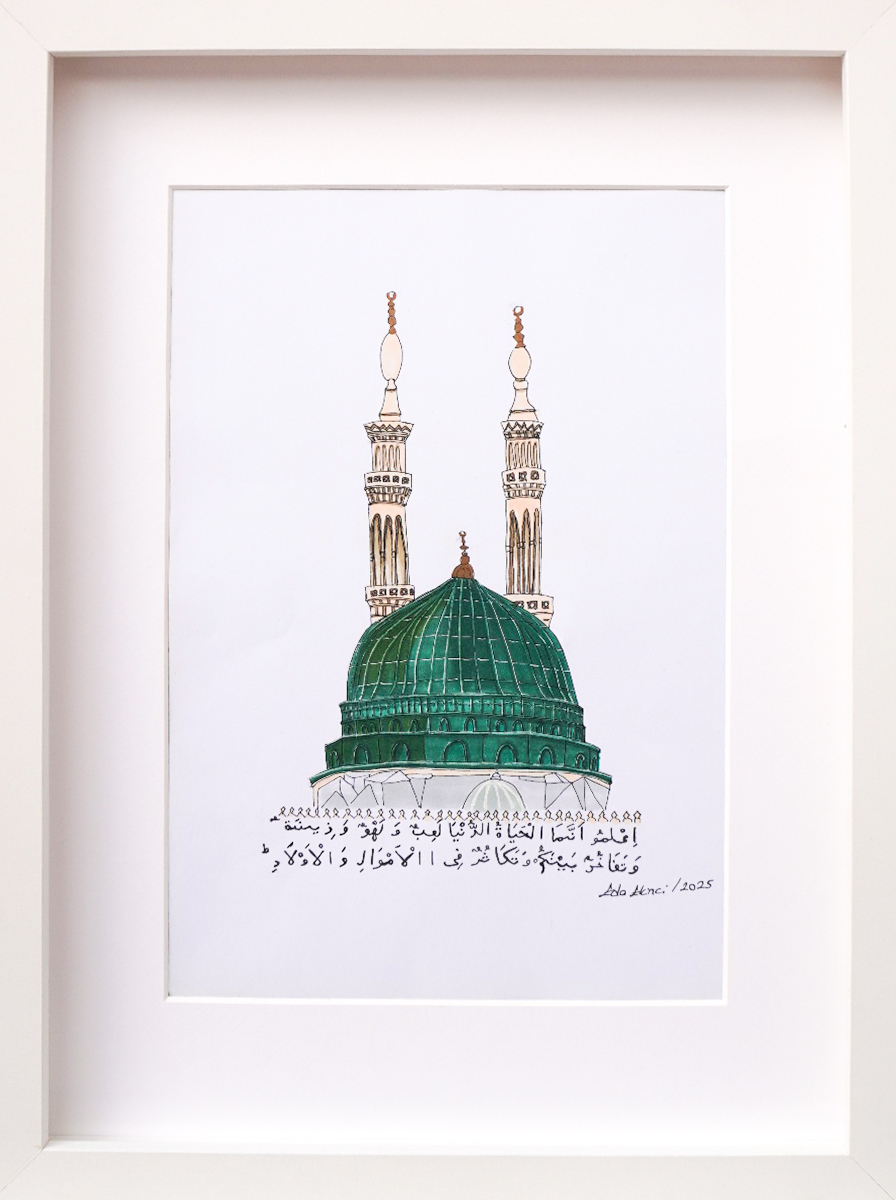 اِعْلَمُو اَنَّمَا الْحَيَاةُ الدُّنْيَا لَعِبٌ وَ لَهْوٌ وَ زِينَةٌ
وَ تَفَاخُرٌ بَيْنَكُمْ وَ تَكَا ثُرٌ فِى ا الْاَمْوَالِ وَ الْاَوْلَادِ ط
/2025